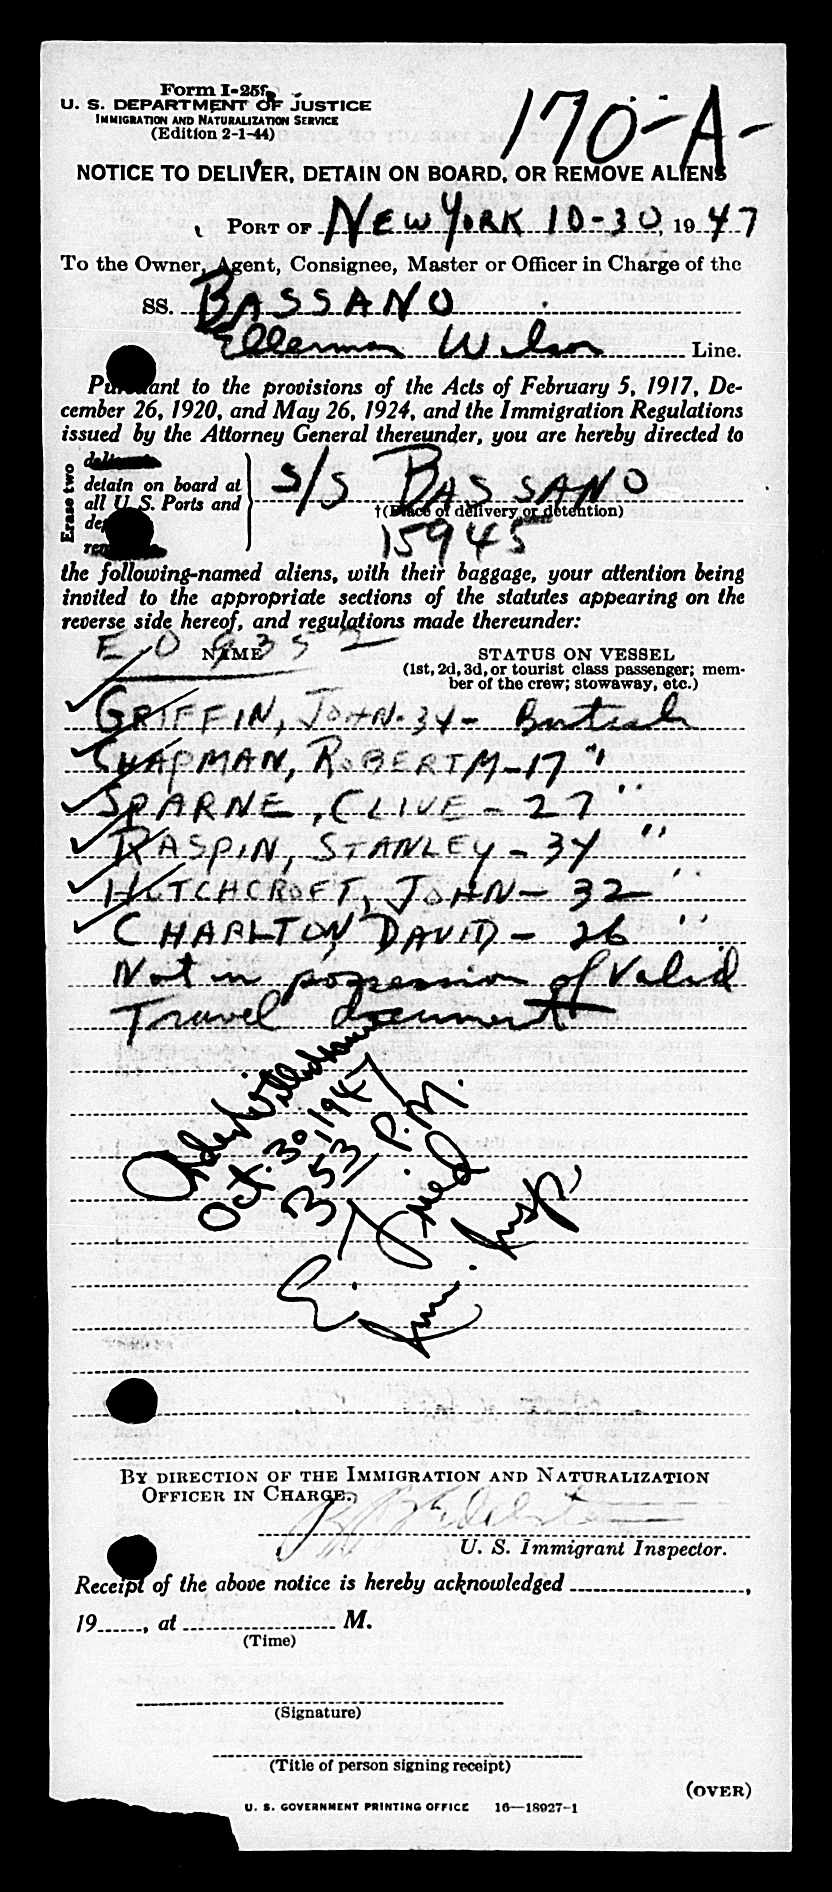 Form I-25f
170-A-
U. S. DEPARTMENT OF JUSTICE
IMMIGRATION AND NATURALIZATION SERVICE
(Edition 2-1-44)
NOTICE TO DELIVER, DETAIN ON BOARD, OR REMOVE ALIENS
PORT OF NEW YORK 10-30, 1947
To the Owner, Agent, Consignee, Master or Officer in Charge of the
SS. BASSANO
Ellerman Wilson Line.
Pursuant to the provisions of the Acts of February 5, 1917, De-
cember 26, 1920, and May 26, 1924, and the Immigration Regulations
issued by the Attorney General thereunder, you are hereby directed to
Erase two
detain on board at
all U. S. Ports and
S/S BASSANO
†(Place of delivery or detention)
15945
the following-named aliens, with their baggage, your attention being
invited to the appropriate sections of the statutes appearing on the
reverse side hereof, and regulations made thereunder:
E/O 9352
NAME
STATUS ON VESSEL
(1st, 2d, 3d, or tourist class passenger; mem-
ber of the crew; stowaway, etc.)
GRIFFIN, JOHN-34- British
CHAPMAN, ROBERT M-17 "
SPARNE, CLIVE - 27 "
RASPIN, STANLEY - 34 "
HUTCHCROFT, JOHN - 32 "
CHARLTON, DAVID - 26 "
Not in possession of Valid
Travel document
Order Withdrawn
Oct. 30, 1947
3 53 P.M.
E. Fried
Imm. Insp.
BY DIRECTION OF THE IMMIGRATION AND NATURALIZATION
OFFICER IN CHARGE.,
U. S. Immigrant Inspector.
Receipt of the above notice is hereby acknowledged ,
19 , at M.
(Time)
(Signature)
(Title of person signing receipt)
(OVER)
U. S. GOVERNMENT PRINTING OFFICE 16—18927-1